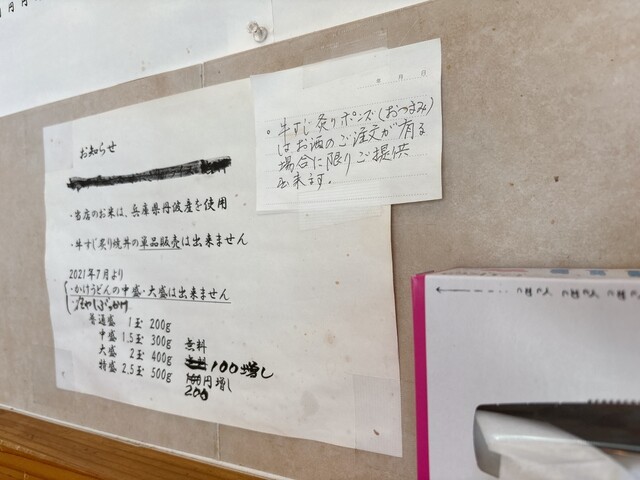 年 月 日
。牛すじ炙りポンズ(おつまみ)
はお酒のご注文が有る
場合に限りご提供
出来ます。
お知らせ
・当店のお米は、兵庫県丹波産を使用
・牛すじ炙り焼丼の単品販売は出来ません
2021年7月より
・かけうどんの中盛・大盛は出来ません
・冷やしぶっかけ
普通盛 1玉 200g
中盛 1.5玉 300g 無料
大盛 2玉 400g 100増し
特盛 2.5玉 500g 100円増し
200